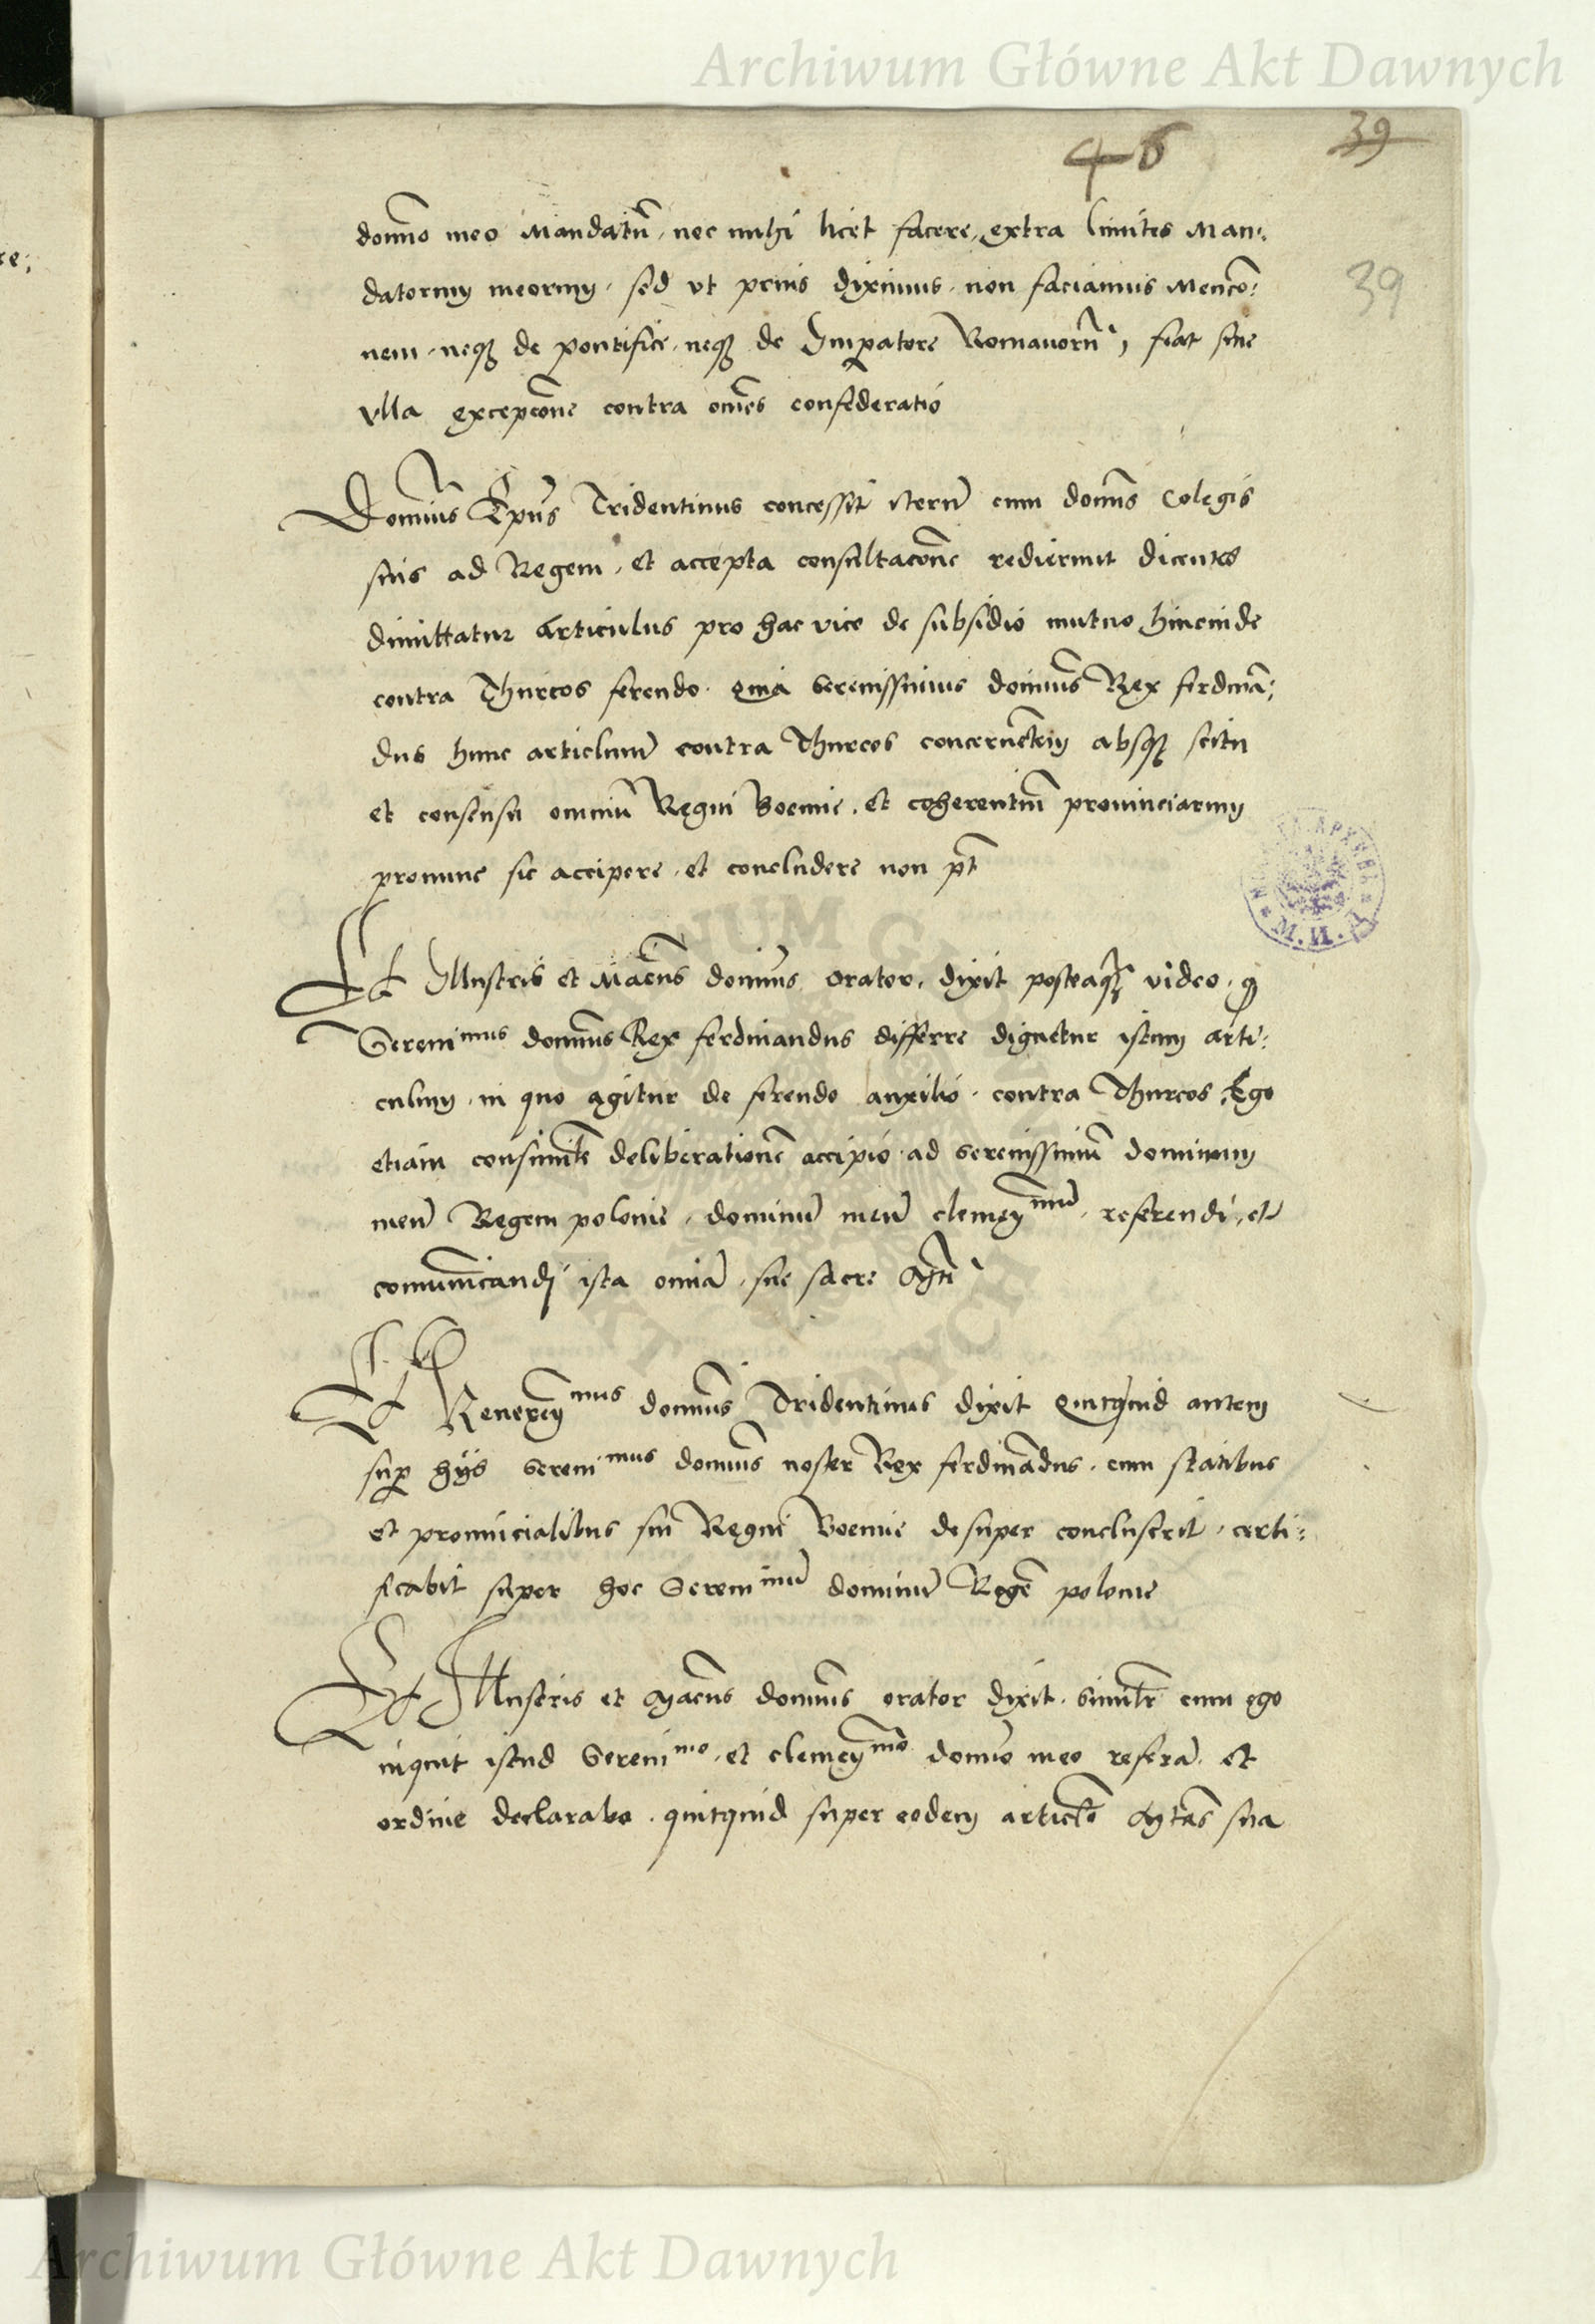 Archiwum Główne Akt Dawnych
46
39
domno meo Mandatũ, nec mihi licet facere, extra limites Man:
39
datorum meorum, sed vt prius diximus, non faciamus mencõ:
nem, neq3 de pontifice, neq3 de Imperatore Romanorũ, fiat sine
vlla excepcõne contra oms confideratio
Domius Ep̃us Tridentinus concessit iterũ cum domis Colegis
suis ad Regem, et accepta consultacõne redierunt dicentes
dimittatur Articulus pro hac vice de subsidio mutuo hincinde
contra Thurcos ferendo. quia serenissimus domius Rex ferdinã:
dus hunc articlum contra Thurcos concernẽtem absq3 scitu
et consensu omniũ Regni Boemie. et coherentiũ prouinciarum
pronunc sic accipere, et concludere non pt̃
Et Illustris et Macũs domius orator, dixit posteaq3 video, q
Serenimus domius Rex ferdinandus differre dignetur istum arti:
culum, in quo agitur de ferendo auxilio. contra Thurcos, Ego
etiam consimilr̃ deliberationẽ accipio, ad serenissimũ dominum
meũ Regem polonie, dominũ meũ clemenmũ, referendi, et
comunicandi ista omnia, sue sacre Mti
Et Reuerenmus domius Tridentinus dixit Quitquid autem
sup hijs serenimus domius noster Rex ferdinãdus. cum statibus
et prouincialibus sui Regni Boemie desuper concluserit, certi:
ficabit super hoc Serenimũ dominũ Regẽ polonie
Et Illustris et Macũs domius orator dixit. similr̃ eum ego
inquit istud Serenimo, et clemenmo domio meo referã. et
ordine declarabo. quitquid super eodem articlo Mtas sua
Archiwum Główne Akt Dawnych